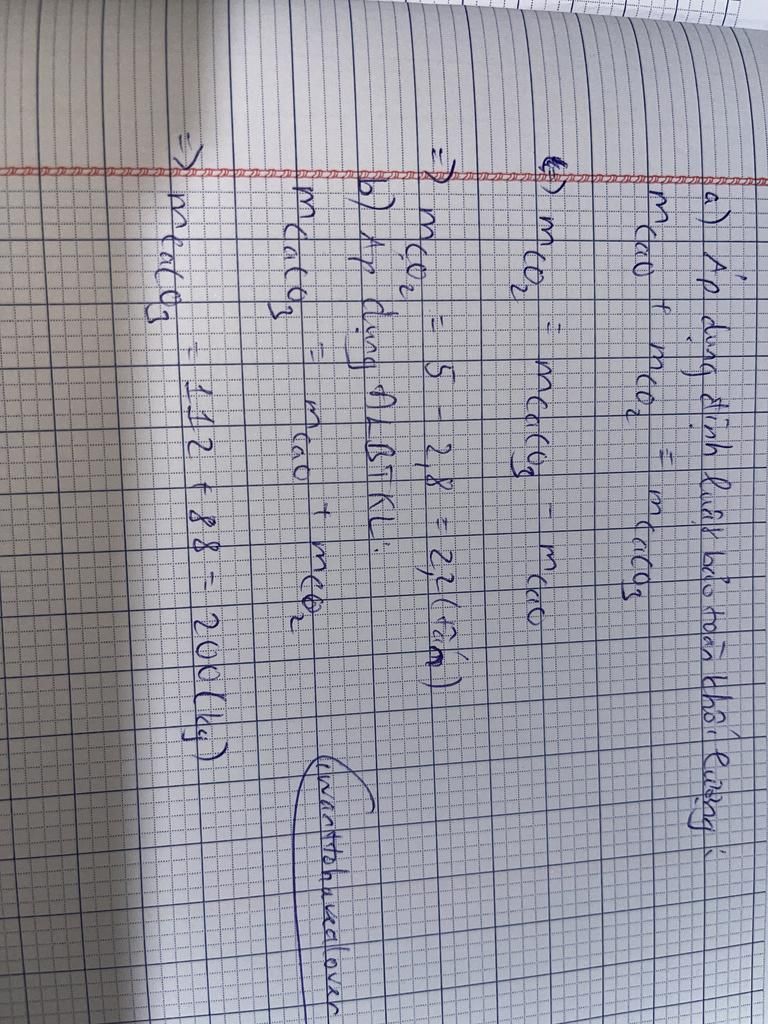 a) Áp dụng định luật bảo toàn khối lượng:
mCaO + mCO₂ = mCaCO₃
(=) mCO₂ = mCaCO₃ - mCaO
=) mCO₂ = 5 - 2,8 = 2,2 (tấn)
b) Áp dụng ĐLBTKL:
mCaCO₃ = mCaO + mCO₂
=) mCaCO₃ = 112 + 88 = 200 (kg)
iwanttohavealover